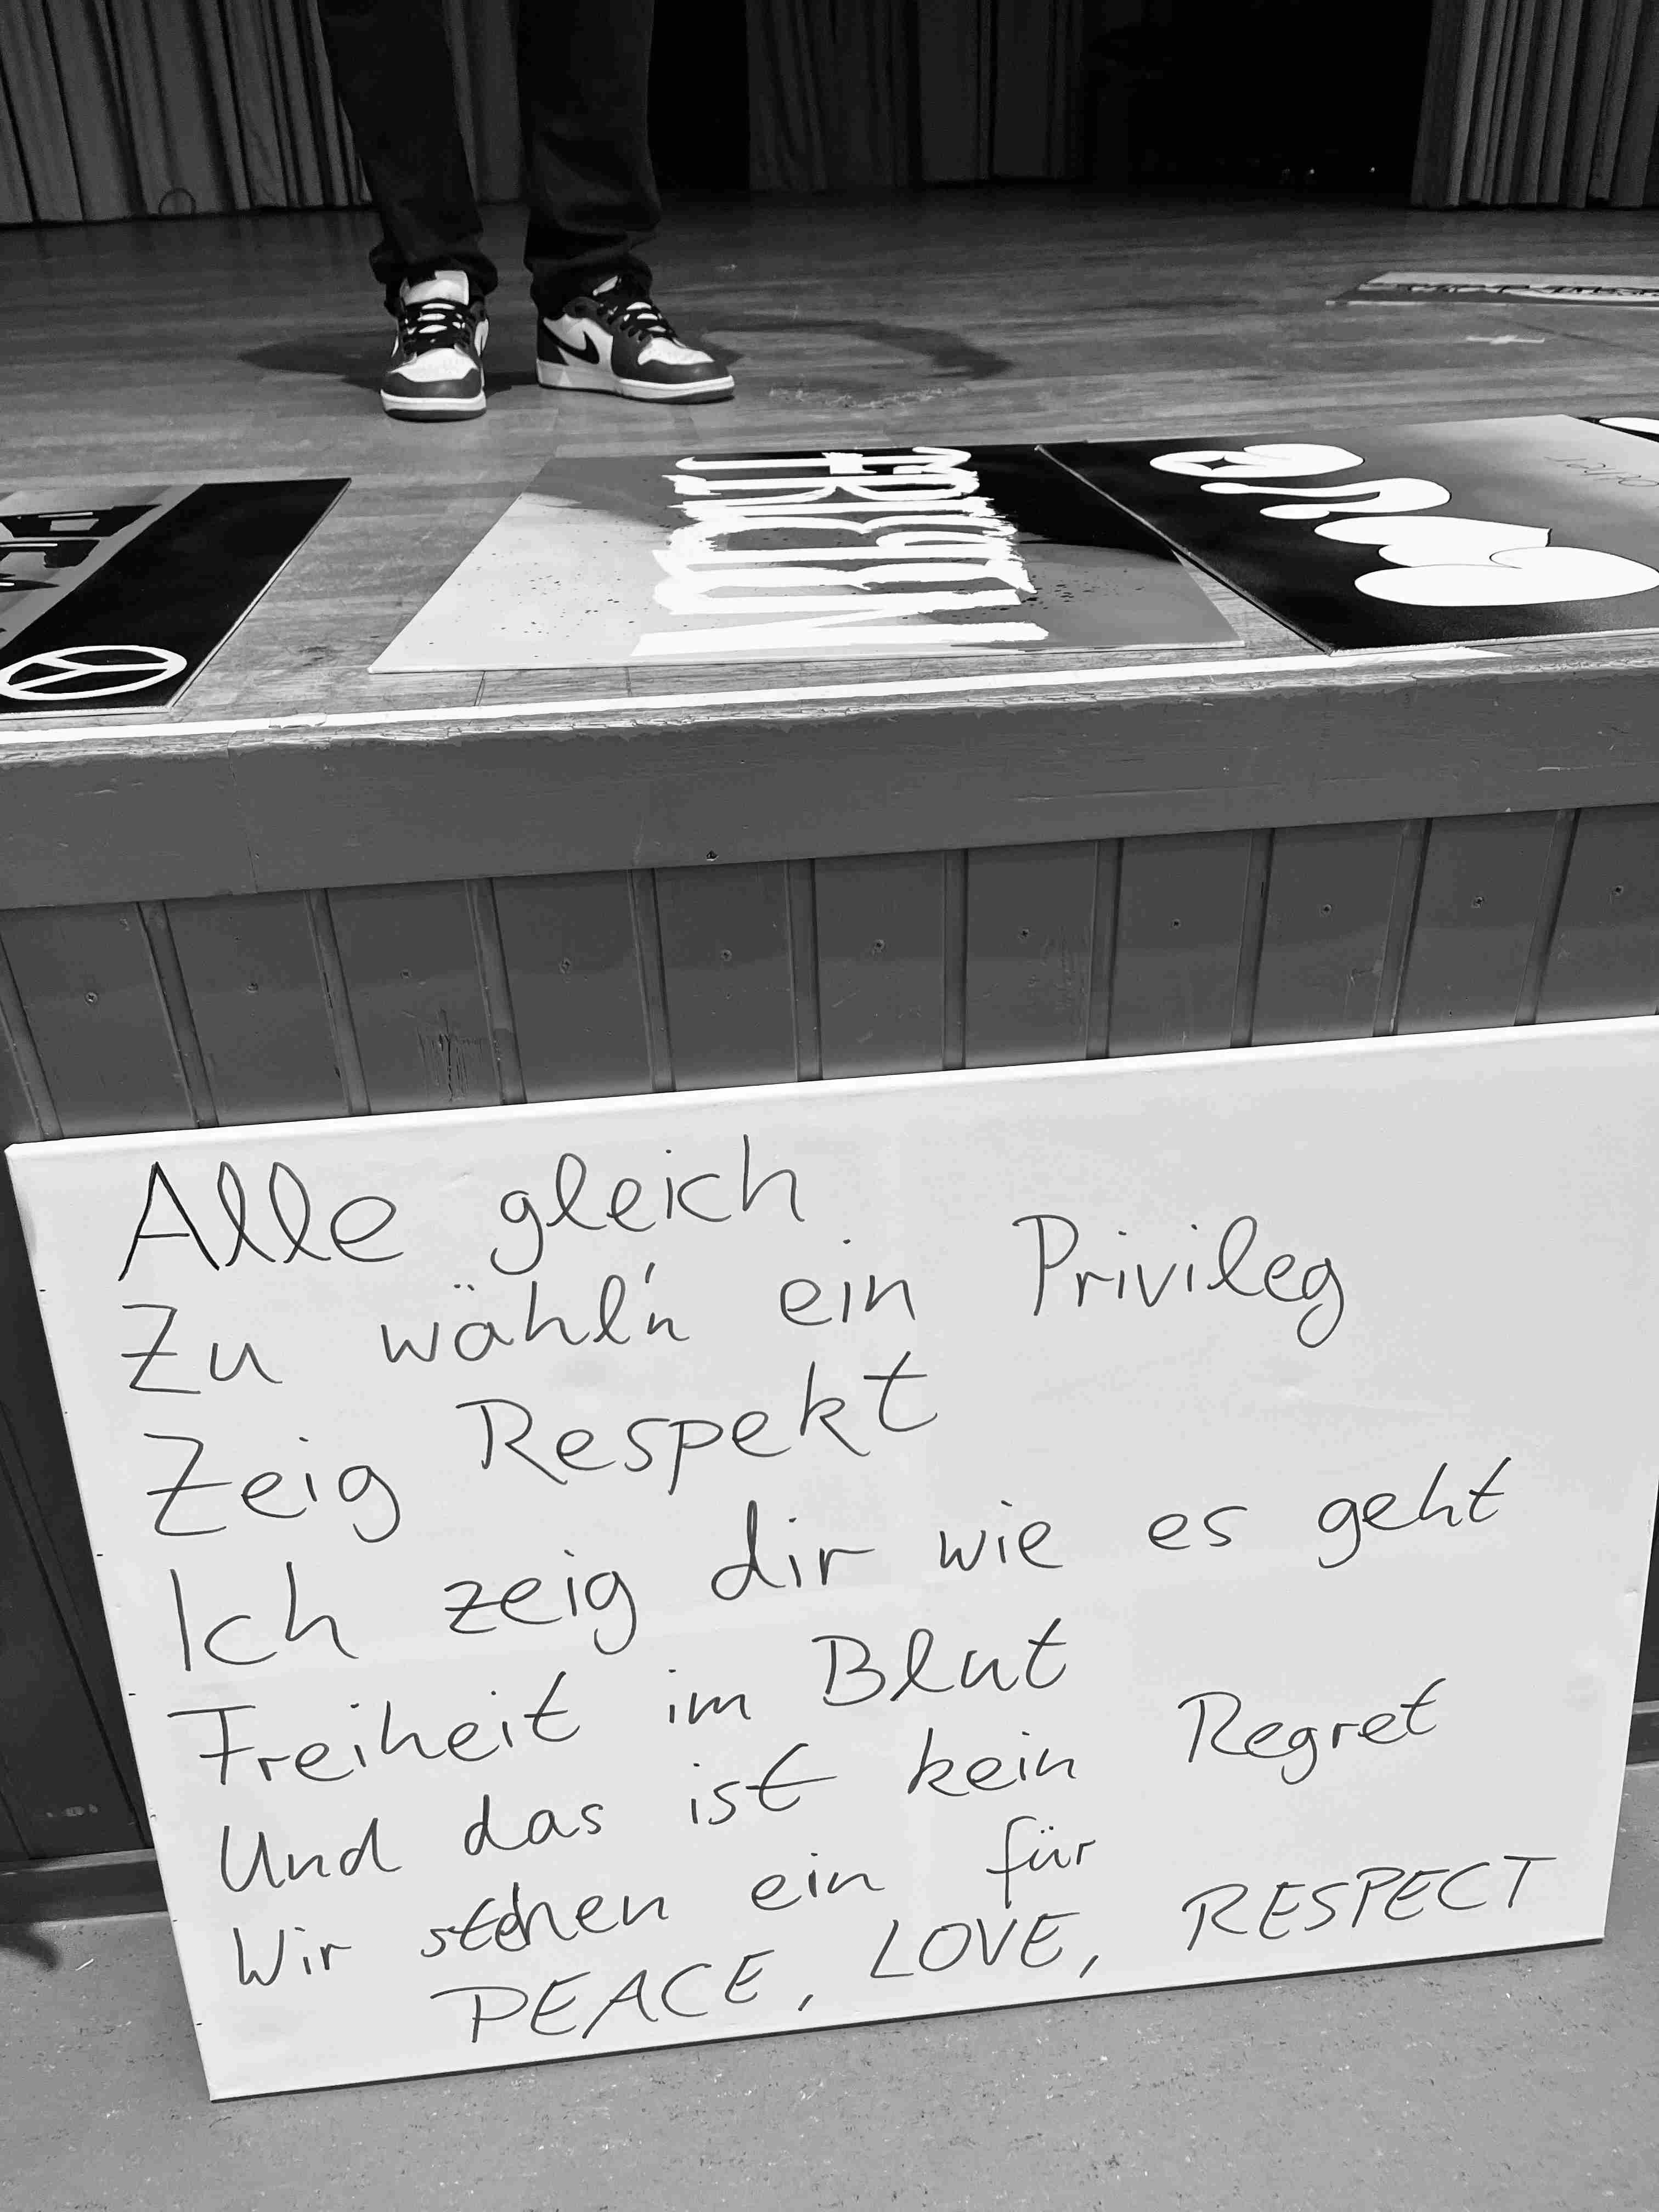 Alle gleich
Zu wähl'n ein Privileg
Zeig Respekt
Ich zeig dir wie es geht
Freiheit im Blut
Und das ist kein Regret
Wir stehen ein für
PEACE, LOVE, RESPECT